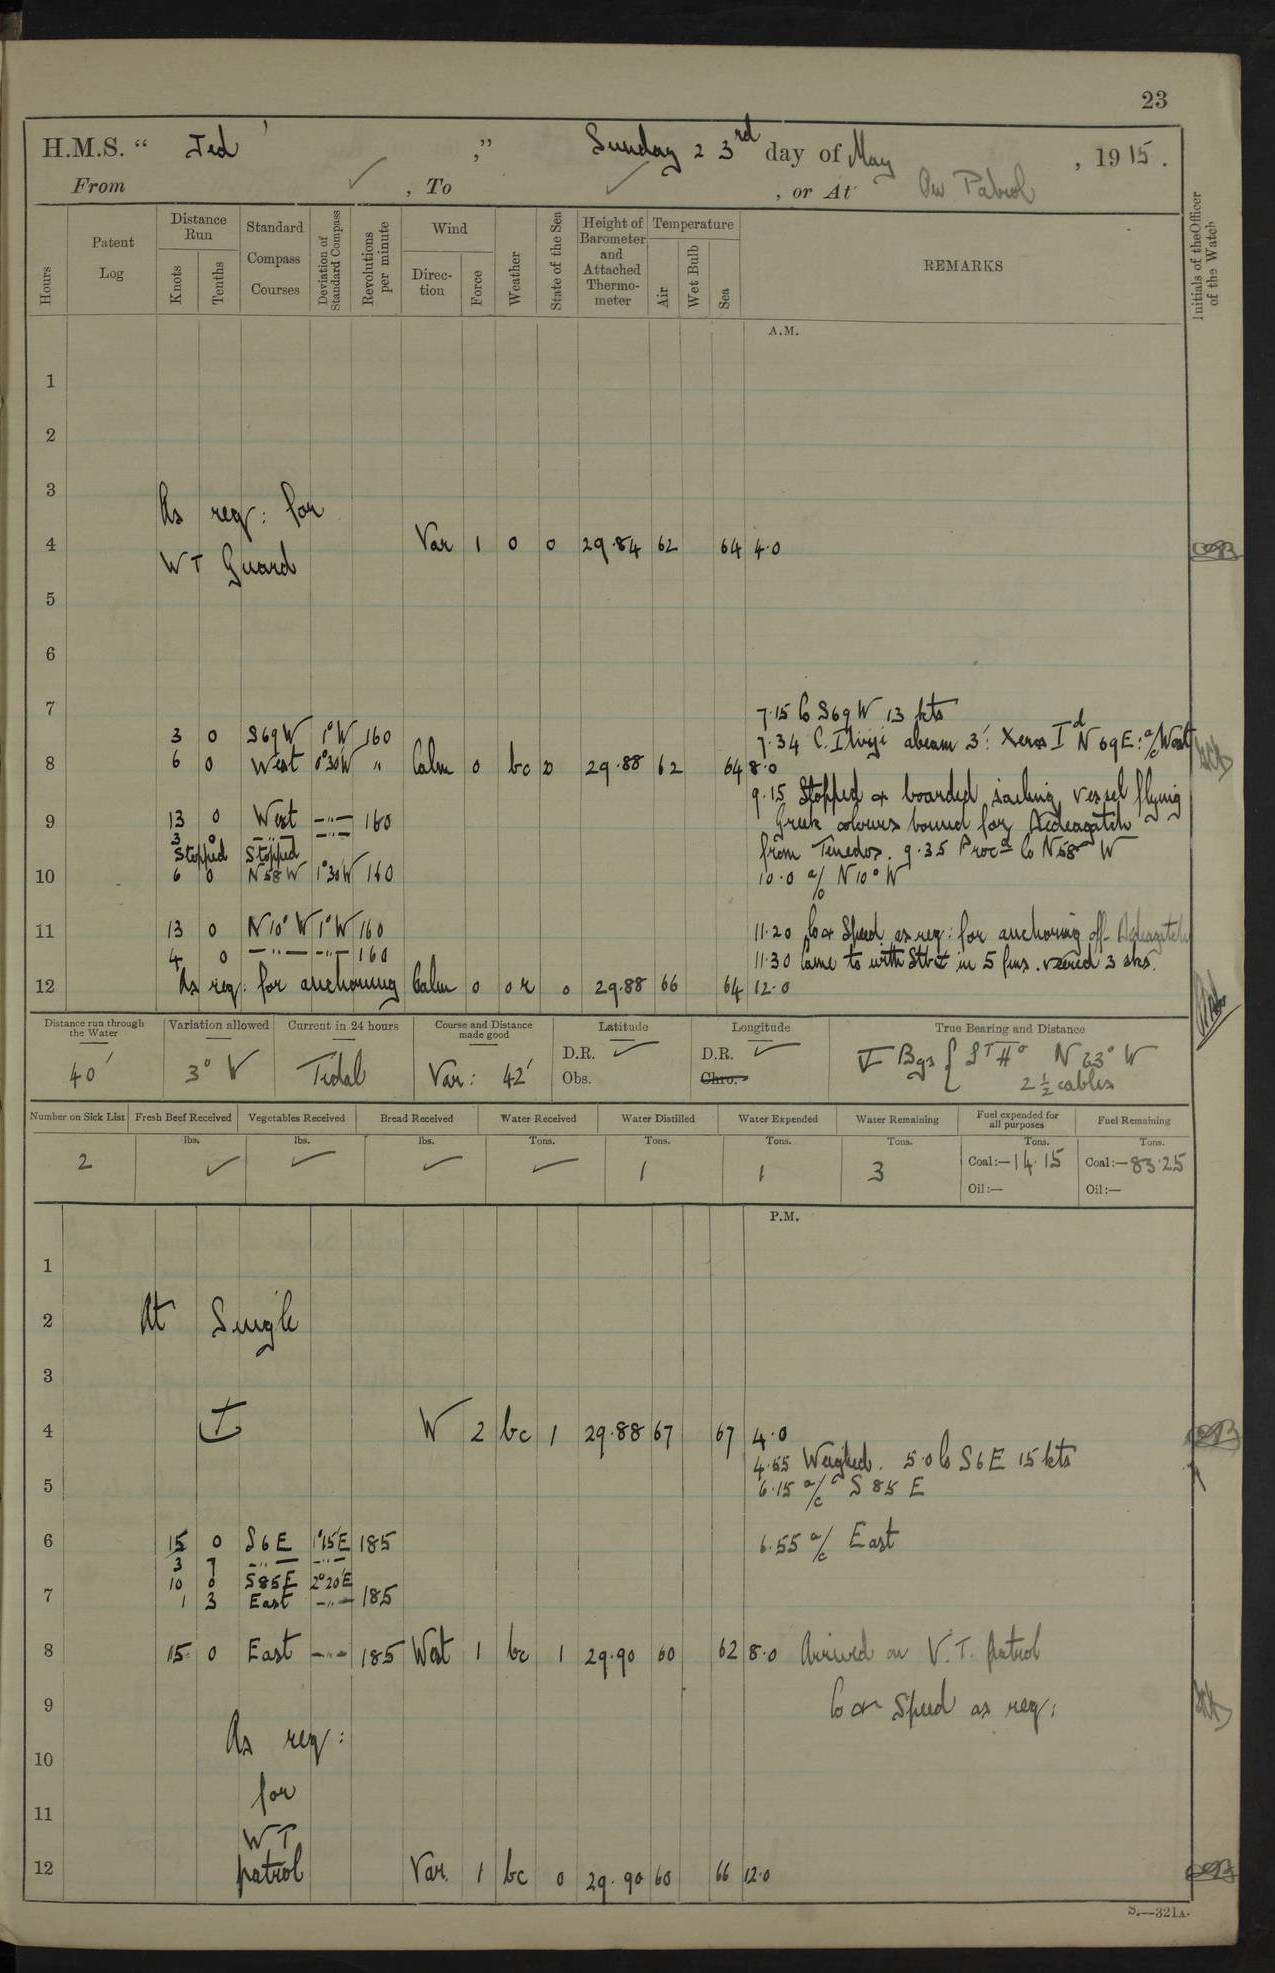 23
H.M.S. “ Jed ,” Sunday 23rd day of May , 1915.
From ✓ , To ✓ , or At On Patrol
Hours
Patent Log
Distance Run
Knots
Tenths
Standard Compass Courses
Deviation of Standard Compass
Revolutions per minute
Wind
Direc-tion
Force
Weather
State of the Sea
Height of Barometer and Attached Thermo-meter
Temperature
Air
Wet Bulb
Sea
REMARKS
Initials of the Officer of the Watch
A.M.
1
2
3
As req: for
4 Var 1 0 0 29.84 62 64 4.0
WT Guard
5
6
7
7.15 Co S69W 13 kts
3 0 S69W 1°W 160 7.34 C. Ibriji abeam 3': Xeros Id N 69E: a/c West
8 6 0 West 0°30'W " Calm 0 bc 0 29.88 62 64 8.0
9.15 Stopped & boarded sailing vessel flying
9 13 0 West -"- 160 Greek colours bound for Dedeagatch
3 0 -"- -"-
Stopped Stopped from Tenedos. 9.35 Procd Co N58°W
10 6 0 N58W 1°30'W 160 10.0 a/c N10°W
11 13 0 N10°W 1°W 160 11.20 Co & Speed as req: for anchoring off Dedeagatch
4 0 -"- -"- 160 11.30 Came to with Stbd in 5 fms. veered 3 shs.
12 As req: for anchoring Calm 0 or 0 29.88 66 64 12.0
Distance run through the Water
40'
Variation allowed
3° W
Current in 24 hours
Tidal
Course and Distance made good
Var: 42'
Latitude
D.R. ✓
Obs.
Longitude
D.R. ✓
Chro.
True Bearing and Distance
Bgs { N 23° W
2½ cables
Number on Sick List
2
Fresh Beef Received
lbs.
✓
Vegetables Received
lbs.
✓
Bread Received
lbs.
✓
Water Received
Tons.
✓
Water Distilled
Tons.
1
Water Expended
Tons.
1
Water Remaining
Tons.
3
Fuel expended for all purposes
Tons.
Coal:—14.15
Oil:—
Fuel Remaining
Tons.
Coal:—83.25
Oil:—
P.M.
1
2 At Single
3
4 W 2 bc 1 29.88 67 67 4.0
4.55 Weighed. 5.0 Co S6E 15 kts
5 6.15 a/c S 85 E
6 15 0 S6E 1°15'E 185 6.55 a/c East
3 7 -"- -"-
10 0 S85E 2°20'E
7 1 3 East -"- 185
8 15 0 East -"- 185 West 1 bc 1 29.90 60 62 8.0 Arrived on V.T. patrol
9 Co & Speed as req:
As req:
10
for
11
WT
12 patrol Var. 1 bc 0 29.90 60 66 12.0
S.—321A.